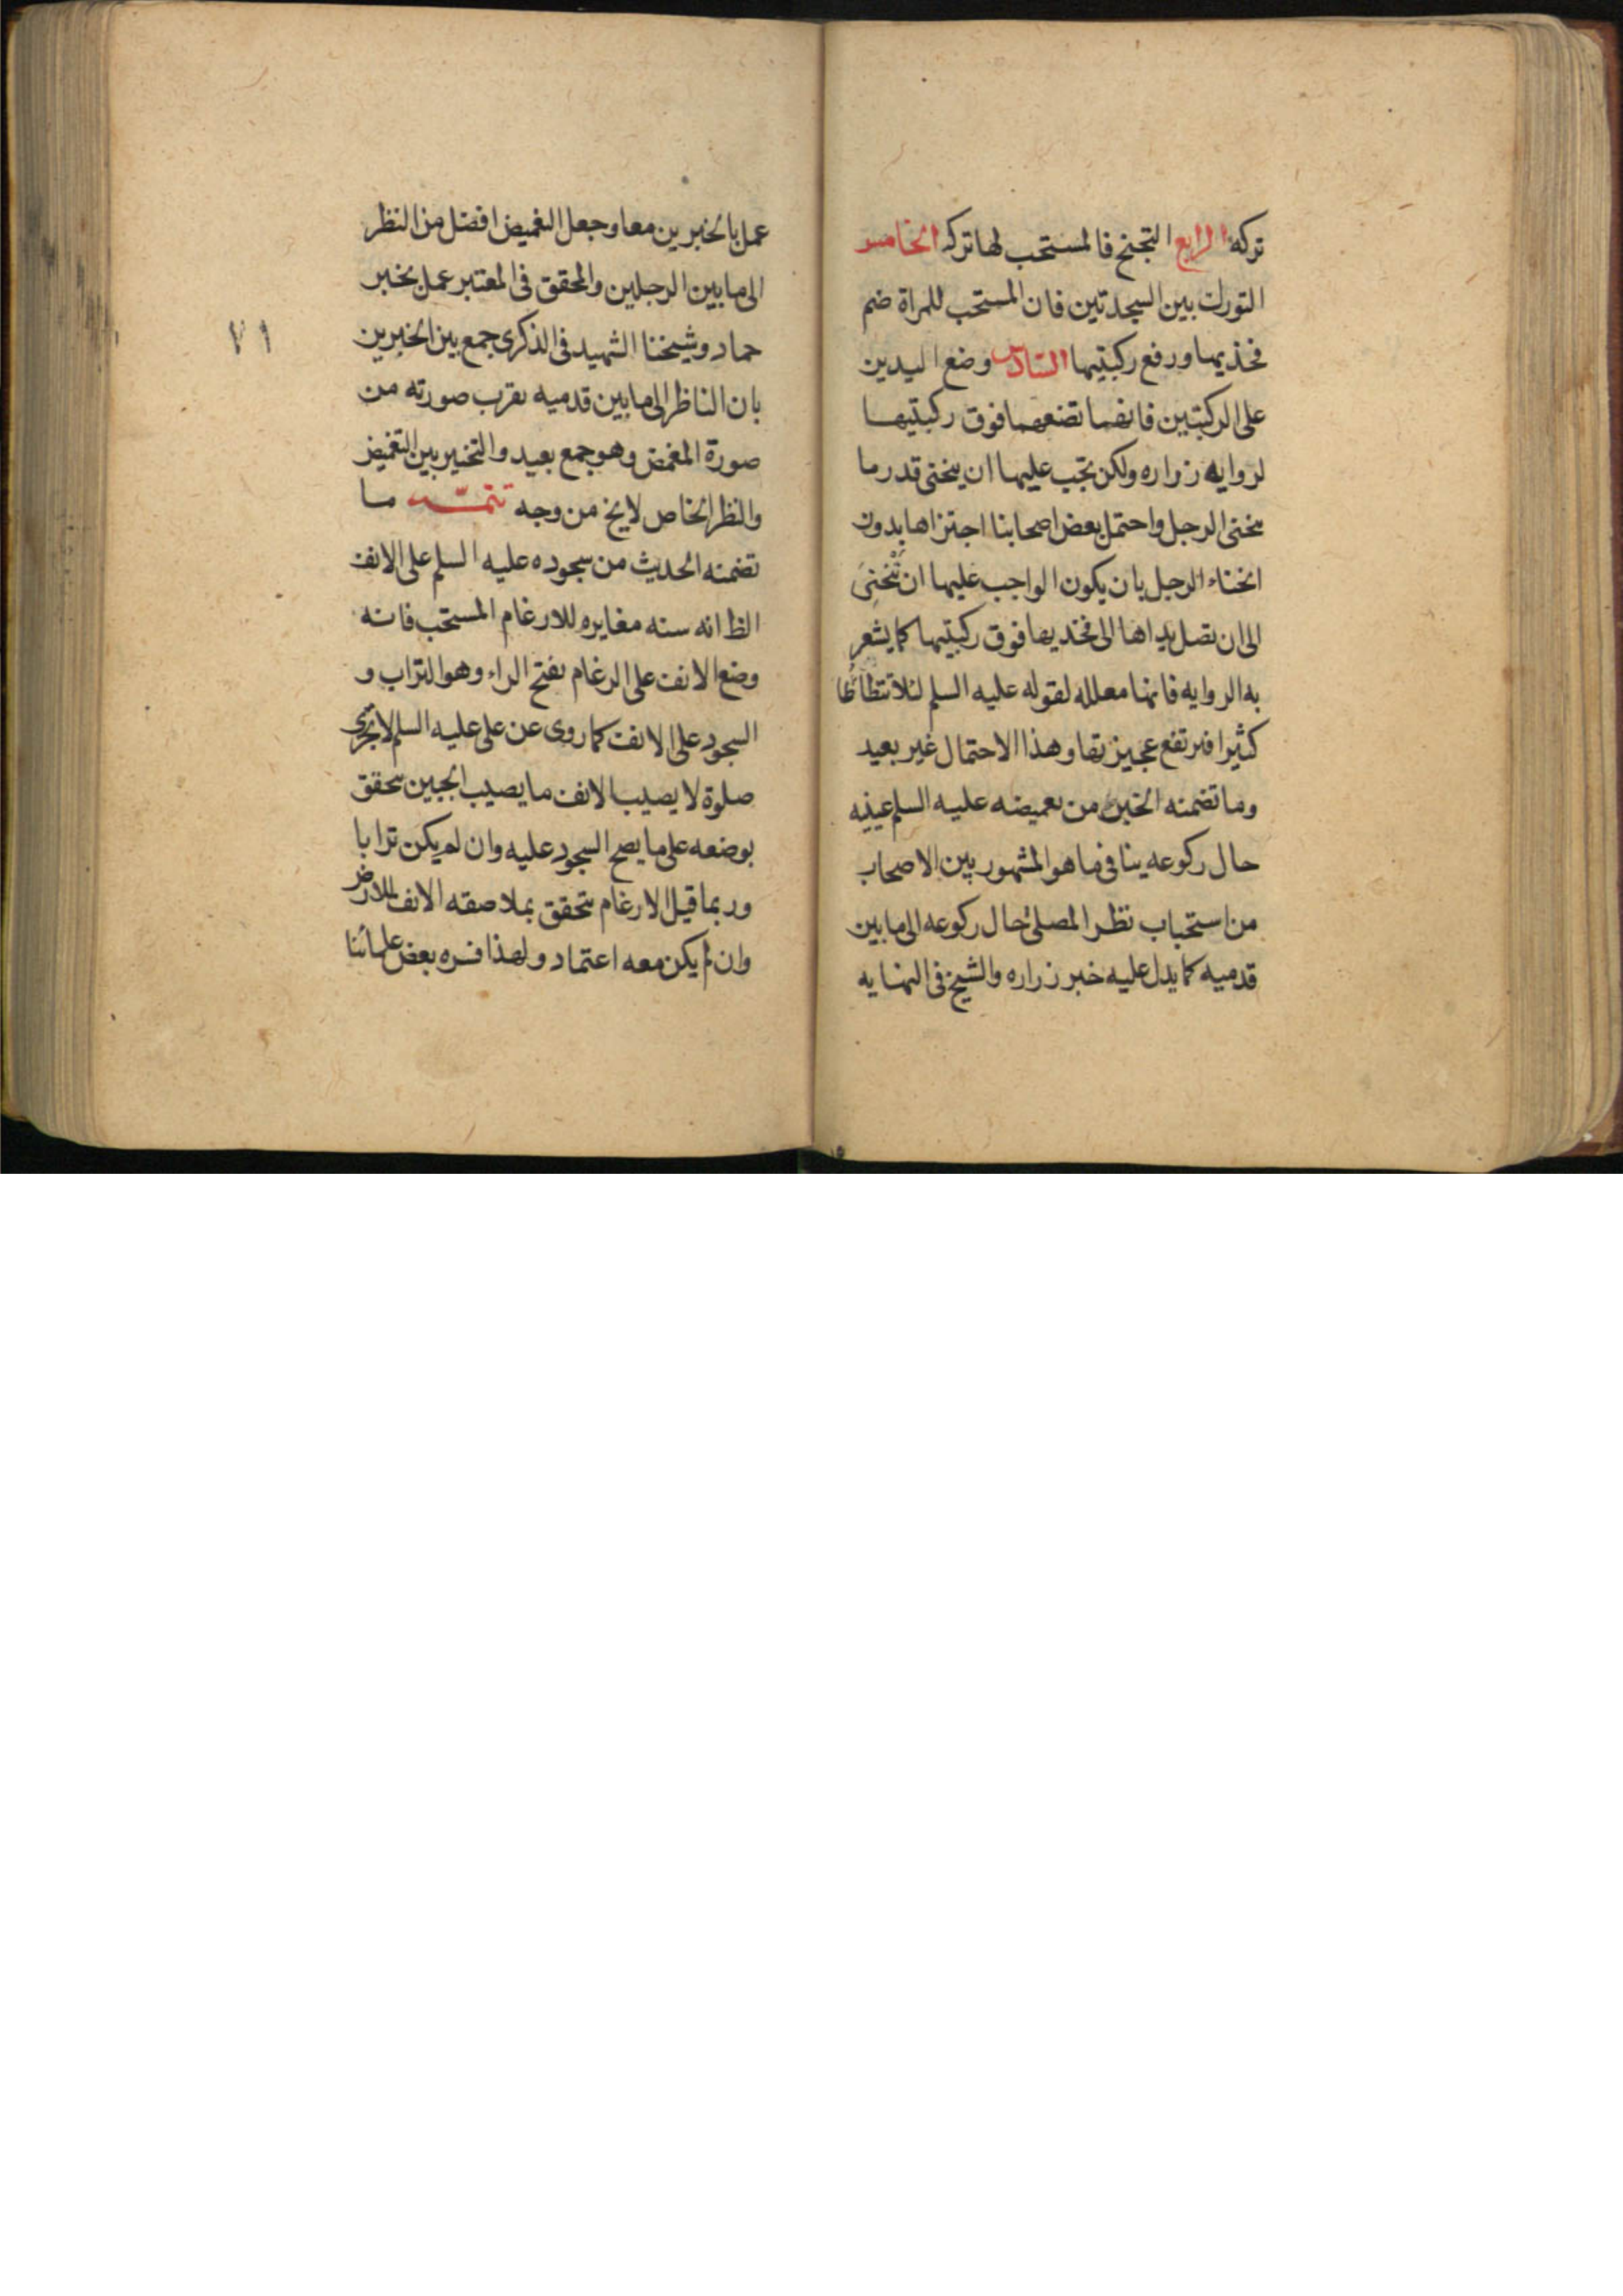 تركه الرابع التجنح فالمستحب لها تركه الخامس
التورك بين السجدتين فان المستحب للمراة ضم
فخذيها ورفع ركبتيها السادس وضع اليدين
على الركبتين فانها تضعهما فوق ركبتيها
لروايه زراره ولكن تجب عليها ان ينحنى قدر ما
ينحنى الرجل واحتمل بعض اصحابنا اجتزاها بدون
انحناء الرجل بان يكون الواجب عليها ان تَنْحَنِىَ
الى ان تصل يداها الى فخديها فوق ركبتيها كما يشعر
به الروايه فانها معلله لقوله عليه السلم لئلا تتطأطأ
كثيرا فترتفع عجيزتها وهذا الاحتمال غير بعيد
وما تضمنه الخبر من تغميضه عليه السلم عينيه
حال ركوعه ينافى ما هو المشهور بين الاصحاب
من استحباب نظر المصلى حال ركوعه الى ما بين
قدميه كما يدل عليه خبر زراره والشيخ فى النهايه
عمل بالخبرين معا وجعل التغميض افضل من النظر
الى ما بين الرجلين والمحقق فى المعتبر عمل بخبر
حماد وشيخنا الشهيد فى الذكرى جمع بين الخبرين
٧١
بان الناظر الى ما بين قدميه تقرب صورته من
صورة المغمض وهو جمع بعيد والتخيير بين التغميض
والنظر الخاص لا يخ من وجه تتمـّـه ما
تضمنه الحديث من سجوده عليه السلم على الانف
الظ انه سنه مغايره للارغام المستحب فانه
وضع الانف على الرغام بفتح الراء وهو التراب و
السجود على الانف كما روى عن على عليه السلم لا تجزى
صلوة لا يصيب الانف ما يصيب الجبين يتحقق
بوضعه على ما يصح السجود عليه وان لم يكن ترابا
وربما قيل الارغام يتحقق بملاصقه الانف للارض
وان لم يكن معه اعتماد ولهذا فسره بعض علمائنا